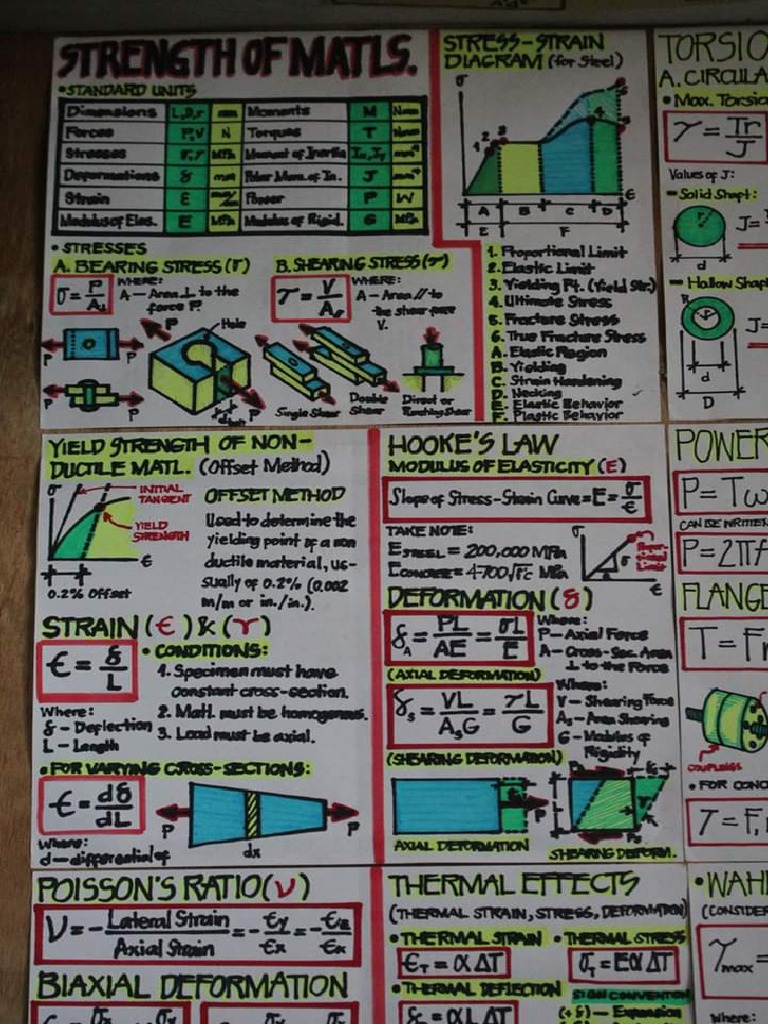 STRENGTH OF MATLS.
• STANDARD UNITS
Dimensions L,D,r mm Moments M N·mm
Forces P,V N Torques T N·mm
Stresses σ,τ MPa Moment of Inertia Ix,Iy mm⁴
Deformations δ mm Polar Mom. of In. J mm⁴
Strain ε mm/mm Power P W
Modulus of Elas. E MPa Modulus of Rigid. G MPa
• STRESSES
A. BEARING STRESS (σ)
σ = P/A
WHERE:
A — Area ⊥ to the
force P.
P P
P P
P
Hole
P
B. SHEARING STRESS (τ)
τ = V/A
WHERE:
A — Area // to
the shear force
V.
Single Shear
Double
Shear
Direct or
Punching Shear
STRESS-STRAIN
DIAGRAM (for Steel)
σ
1 2 3 4 5 6
ε
A B C D
E F
1. Proportional Limit
2. Elastic Limit
3. Yielding Pt. (Yield Str.)
4. Ultimate Stress
5. Fracture Stress
6. True Fracture Stress
A. Elastic Region
B. Yielding
C. Strain Hardening
D. Necking
E. Elastic Behavior
F. Plastic Behavior
TORSIO
A. CIRCULA
• Max. Torsio
τ = Tr/J
Values of J:
- Solid Shaft:
r
d
J=
- Hollow Shaf
R
r
d
D
J=
YIELD STRENGTH OF NON-
DUCTILE MATL. (Offset Method)
σ
INITIAL
TANGENT
YIELD
STRENGTH
ε
0.2% Offset
OFFSET METHOD
Used to determine the
yielding point of a non
ductile material, us-
ually of 0.2% (0.002
m/m or in./in.).
STRAIN (ε) & (γ)
ε = δ/L
• CONDITIONS:
1. Specimen must have
constant cross-section.
2. Matl. must be homogenous.
3. Load must be axial.
Where:
δ - Deflection
L - Length
• FOR VARYING CROSS-SECTIONS:
ε = dδ/dL
P P
dx
Where:
d — differential of
HOOKE'S LAW
MODULUS OF ELASTICITY (E)
Slope of Stress-Strain Curve = E = σ/ε
TAKE NOTE:
E STEEL = 200,000 MPa
E CONCRETE = 4700√f'c MPa
σ
ε
DEFORMATION (δ)
δA = PL/AE = σL/E
Where:
P - Axial Force
A - Cross-Sec. Area
⊥ to the Force
(AXIAL DEFORMATION)
δs = VL/AsG = τL/G
Where:
V - Shearing Force
As - Area Shearing
G - Modulus of
Rigidity
(SHEARING DEFORMATION)
AXIAL DEFORMATION
SHEARING DEFORM.
POWER
P = Tω
CAN BE WRITTEN
P = 2πf
FLANGE
T = Fr
COUPLINGS
• FOR CONC
T = F,
POISSON'S RATIO (ν)
ν = - Lateral Strain/Axial Strain = - εy/εx = - εz/εx
BIAXIAL DEFORMATION
THERMAL EFFECTS
(THERMAL STRAIN, STRESS, DEFORMATION)
• THERMAL STRAIN
εT = αΔT
• THERMAL STRESS
σT = EαΔT
• THERMAL DEFLECTION
δT = αLΔT
SIGN CONVENTION
(+δ) - Expansion
• WAH
(CONSIDER
τmax =
Where: